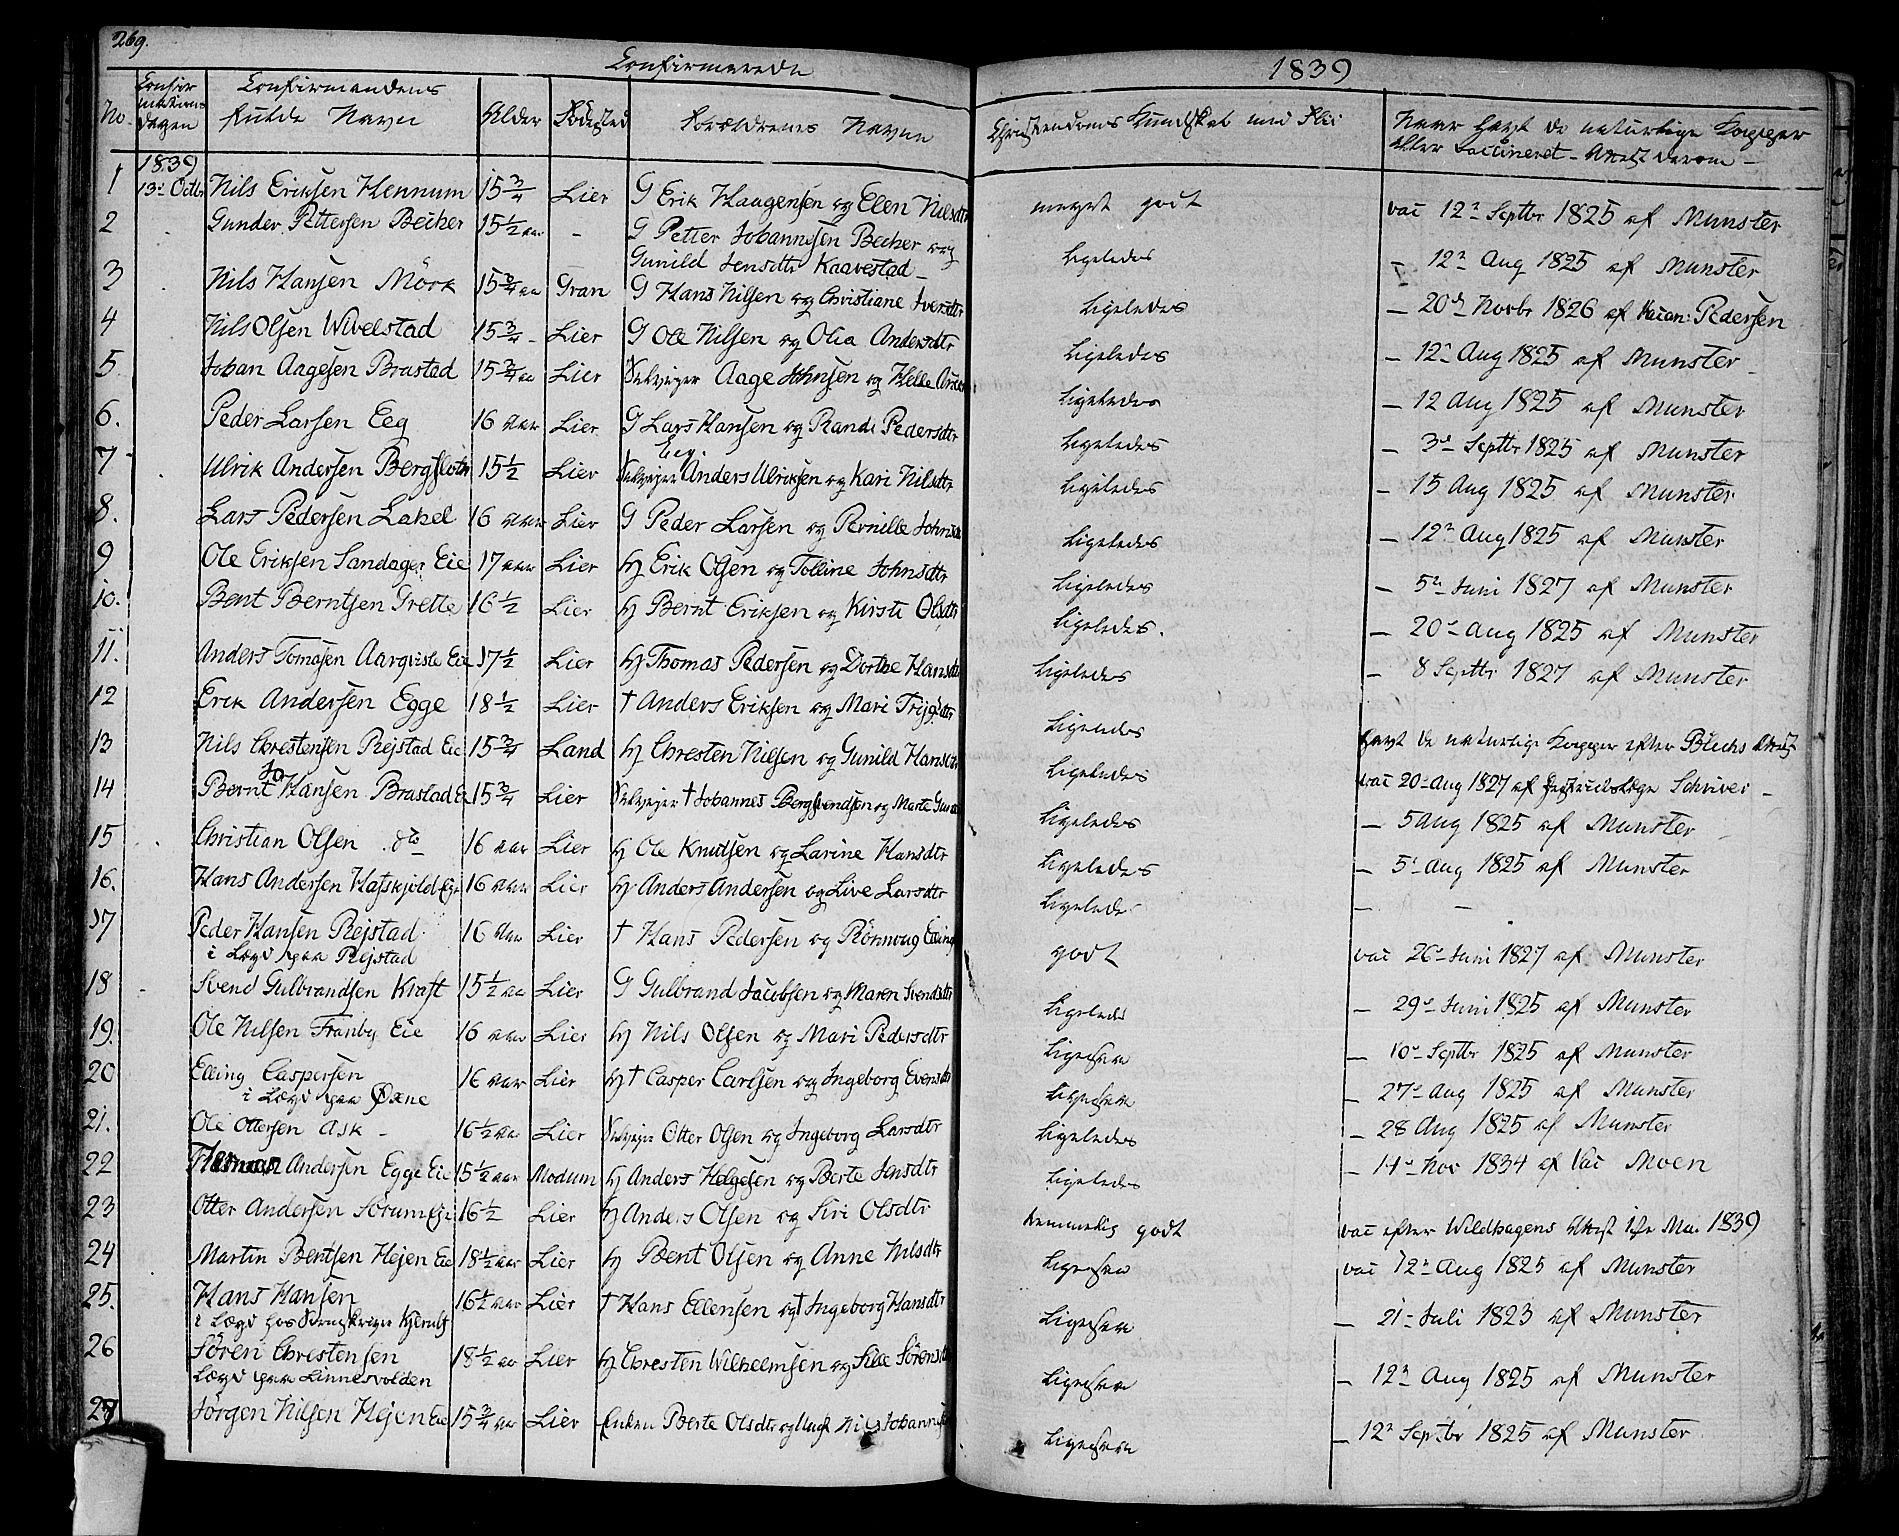 269.
Confirmerede 1839
No. Confirmations Dagen Confirmandens fulde Navn Alder Födested Forældrenes Navne Christendoms Kundskab und Flid Naar havt de naturlige Kopper eller Vaccineret - Attest derom -
1 1839 13de Octbr Nils Eriksen Hennum 15 3/4 Lier G Erik Haagensen og Elen Nilsdtr meget godt vac 12te Septbr 1825 af Munster
2 Gunder Pettersen Becher 15 1/2 aar - G Petter Johannesen Becher og Gunild Jensdtr Kaavestad - Ligeledes - 12te Aug 1825 af Munster
3 Nils Hansen Mörk 15 3/4 aa Gran G Hans Nilsen og Christiane Iversdtr Ligeledes - 20de Novbr 1826 af Vacan: Pedersen
4 Nils Olsen Wivelstad 15 3/4 - Lier G Ole Nilsen og Olia Andersdtr Ligeledes - 12te Aug 1825 af Munster -
5 Johan Aagesen Brastad 15 3/4 aa Lier Selveyer Aage Johnsen og Helle Ligeledes - 12 Aug 1825 af Munster
6. Peder Larsen Eeg 16 aar Lier G Lars Hansen og Randi Pedersdtr Eeg. Ligeledes - 3de Septbr 1825 af Munster
7 Ulrik Andersen Bergflot 15 1/2 Lier Selveyer Anders Ulriksen og Kari Nilsdtr Ligeledes - 15 Aug 1825 af Munster
8. Lars Pedersen Lahel 16 aar Lier G Peder Larsen og Pernille Johnsd Ligeledes - 12te Aug 1825 af Munster
9 Ole Eriksen Sandager Eie 17 aar Lier Hj Erik Olsen og Tolline Johnsdtr Ligeledes - 5te Juni 1827 af Munster
10. Bent Berntsen Grette 16 1/2 Lier Hj Bernt Eriksen og Kirsti Olsdtr Ligeledes. - 20de Aug 1825 af Munster
11. Anders Tomasen Aarqvisle Eie 17 1/2 Lier Hj Thomas Pedersen og Dorthe Hansd Ligeledes - 8 Septbr 1827 af Munster
12 Erik Andersen Egge 18 1/2 Lier † Anders Eriksen og Mari Ligeledes
13 Nils Chrestensen Rejstad Eie 15 3/4 Land Hj Chresten Nielsen og Gunild Hansdtr Ligeledes havt de naturlige Kopper efter Blichs Attest
14 Bernt Jo Hansen Brastad E 15 3/4 Lier Selveyer † Johannes Bergsvendsen og Marte Ligeledes vac 20de Aug 1827 af Districtslæge Schriver -
15 Christian Olsen do 16 aar Lier Hj Ole Knudsen og Larine Hansdtr Ligeledes - 5 Aug 1825 af Munster
16. Hans Andersen Hafskjold Eje 16 aar Lier Hj Anders Andersen og Live Larsdtr Ligeledes - 5te Aug 1825 af Munster
17 Peder Hansen Rejstad i Lægd paa Rejstad 16 aar Lier † Hans Pedersen og Rönnoug godt vac 26de Juni 1827 af Munster
18 Svend Gulbrandsen Kraft 15 1/2 aa Lier G Gulbrand Jacobsen og Maren Svendsdtr Ligeledes - 29de Juni 1825 af Munster
19. Ole Nilsen Tranby Eie 16 aar Lier Hj Nils Olsen og Mari Pedersdtr Ligesaa - 10de Septbr 1825 af Munster
20 Elling Caspersen i Lægd paa Øxne 16 aar Lier Hj † Casper Carlsen og Ingeborg Evensdtr Ligesaa - 27de Aug 1825 af Munster
21. Ole Ottersen Ask - 16 1/2 aar Lier Selveyer Otter Olsen og Ingeborg Larsdtr Ligeledes - 28 Aug 1825 af Munster
22 Andersen Egge Eie 15 1/2 aar Modum Hj Anders Helgesen og Berte Jensdtr Ligeledes - 14de Nov 1834 af Vac Moen
23 Otter Andersen Sörum Eje 16 1/2 Lier Hj Anders Olsen og Siri Olsdtr temmelig godt vac efter Wildhagens Attest 1ste Mai 1839
24 Martin Bentsen Hejen Eie 18 1/2 aar Lier Hj Bent Olsen og Anne Nilsdtr Ligesaa vac 12te Aug 1825 af Munster
25. Hans Hansen i Lægd hos Kjerulf 16 1/2 aar Lier † Hans Ellensen og † Ingeborg Hansdtr Ligesaa - 21de Juli 1823 af Munster
26 Sören Chrestensen Lægd paa Linnesvolden 18 1/2 aar Lier Hj Chresten Wilhelmsen og Silie Sörensd Ligesaa - 12te Aug 1825 af Munster
27 Jörgen Nilsen Hejen Eie 15 3/4 aar Lier Enken Berte Olsdtr og Nils Johannes Ligesaa - 12te Septbr 1825 af Munster